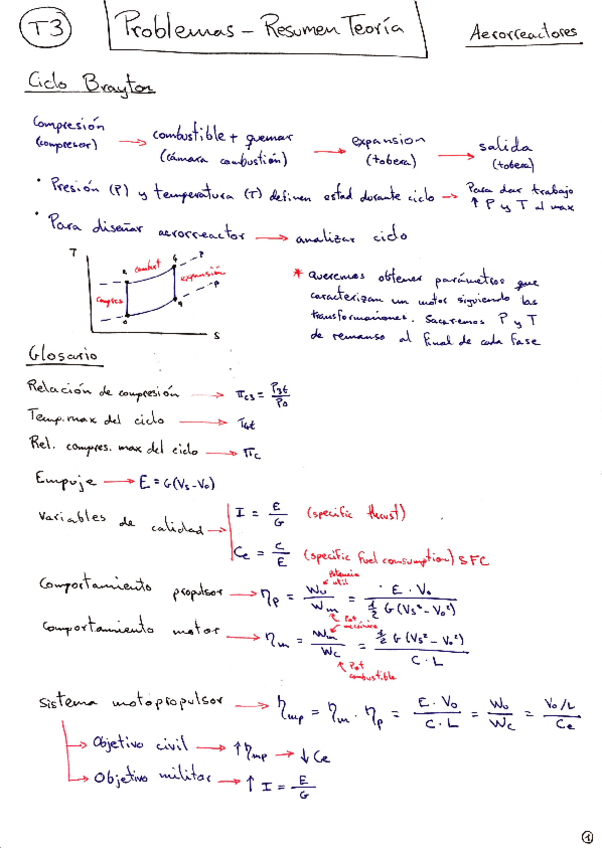 T3
Problemas - Resumen Teoría
Aerorreactores
Ciclo Brayton
Compresión (compresor) → combustible + quemar (cámara combustión) → expansion (tobera) → salida (tobera)
· Presión (P) y temperatura (T) definen estad durante ciclo → Para dar trabajo ↑ P y T al max
· Para diseñar aerorreactor → analizar ciclo
T
combust
expansión
compres
S
* Queremos obtener parámetros que
caracterizan un motor siguiendo las
transformaciones. Sacaremos P y T
de remanso al final de cada fase
Glosario
Relación de compresión → π_c3 = P3t/P0
Temp. max del ciclo → T4t
Rel. compres. max del ciclo → πc
Empuje → E = G(Vs-Vo)
Variables de calidad →
I = E/G (specific thrust)
Ce = C/E (specific fuel consumption) SFC
Comportamiento propulsor → ηp = Wu/Wm = E·Vo / ½ G(Vs²-Vo²)
Potencia util
Pot mecánica
Comportamiento motor → ηm = Wm/Wc = ½ G(Vs²-Vo²) / C·L
Pot combustible
Sistema motopropulsor → ηmp = ηm · ηp = E·Vo / C·L = Wu/Wc = Vo/L / Ce
Objetivo civil → ↑ηmp → ↓Ce
Objetivo militar → ↑ I = E/G
1